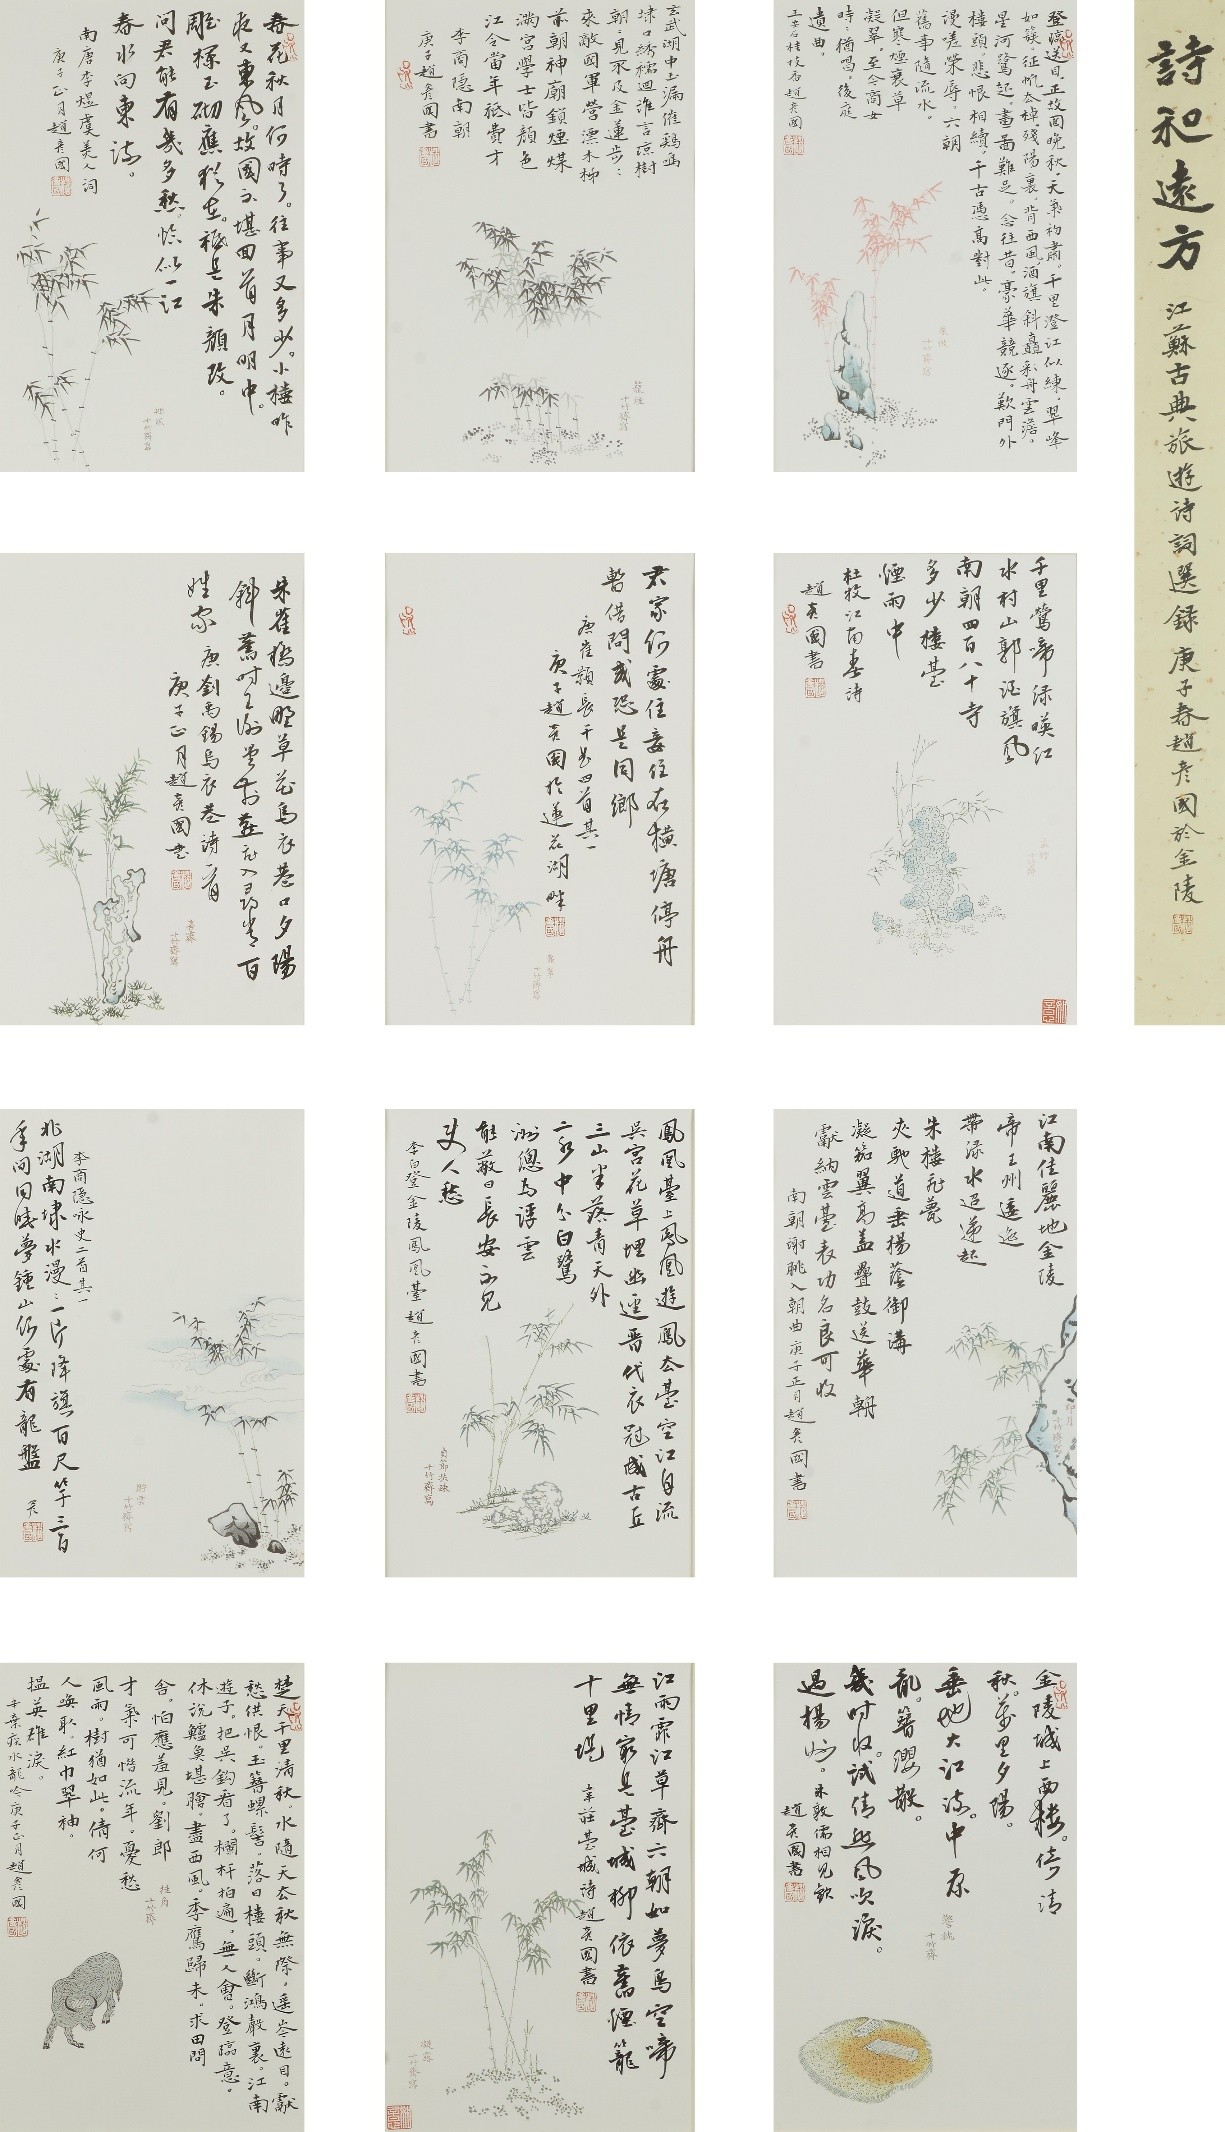 詩和遠方 江蘇古典旅遊詩詞選録 庚子春趙彥國於金陵
登臨送目。正故國晚秋。天氣初肅。千里澄江似練。翠峰
如簇。征帆去棹殘陽裏。背西風酒旗斜矗。彩舟雲澹。
星河鷺起。畫圖難足。念往昔。豪華競逐。歎門外
樓頭。悲恨相續。千古憑高對此。
漫嗟榮辱。六朝
舊事隨流水。
但寒煙衰草
凝翠。至今商女
時時猶唱。後庭
遺曲。
王安石桂枝香趙彥國
十竹齋寫
玄武湖中玉漏催鷄鳴
埭口綉襦迴誰言瓊樹
朝朝見不及金蓮步步
來敵國軍營漂木柹
前朝神廟鎖煙煤
滿宮學士皆顏色
江令當年祗費才
李商隱南朝
庚子趙彥國書
籠煙
十竹齋寫
春花秋月何時了。往事又多少。小樓昨
夜又東風。故國不堪回首月明中。
雕欄玉砌應猶在。祗是朱顏改。
問君能有幾多愁。恰似一江
春水向東流。
南唐李煜虞美人詞
庚子正月趙彥國
十竹齋寫
千里鶯啼綠暎紅
水村山郭酒旗風
南朝四百八十寺
多少樓臺
煙雨中
杜牧江南春詩
趙彥國書
十竹齋
君家何處住妾住在橫塘停舟
暫借問或恐是同鄉
唐崔顥長干曲四首其一
庚子趙彥國於蓮花湖畔
十竹齋寫
朱雀橋邊野草花烏衣巷口夕陽
斜舊時王謝堂前燕飛入尋常百
姓家 唐劉禹錫烏衣巷詩一首
庚子正月趙彥國書
十竹齋寫
江南佳麗地金陵
帝王州逶迤
帶綠水迢遞起
朱樓飛甍
夾馳道垂楊蔭御溝
凝笳翼高蓋疊鼓送華輈
獻納雲臺表功名良可收
南朝謝朓入朝曲庚子正月趙彥國書
十竹齋寫
鳳凰臺上鳳凰遊鳳去臺空江自流
吳宮花草埋幽逕晉代衣冠成古丘
三山半落青天外
二水中分白鷺
洲總為浮雲
能蔽日長安不見
使人愁
李白登金陵鳳凰臺趙彥國書
十竹齋寫
李商隱咏史二首其一
北湖南埭水漫漫一片降旗百尺竿三百
年間同曉夢鍾山何處有龍盤
彥
十竹齋寫
金陵城上西樓。倚清
秋。萬里夕陽。
垂地大江流。中原
亂。簪纓散。
幾時收。試倩悲風吹淚。
過楊州。朱敦儒相見歡
趙彥國書
十竹齋
江雨霏霏江草齊六朝如夢鳥空啼
無情最是臺城柳依舊煙籠
十里堤 韋莊臺城詩趙彥國書
凝露
十竹齋寫
楚天千里清秋。水隨天去秋無際。遥岑遠目。獻
愁供恨。玉簪螺髻。落日樓頭。斷鴻聲裏。江南
遊子。把吳鉤看了。欄杆拍遍。無人會。登臨意。
休說鱸魚堪膾。盡西風。季鷹歸未。求田問
舍。怕應羞見。劉郎
才氣可惜流年。憂愁
風雨。樹猶如此。倩何
人喚取。紅巾翠袖。
揾英雄淚。
辛棄疾水龍吟庚子正月趙彥國
挂角
十竹齋